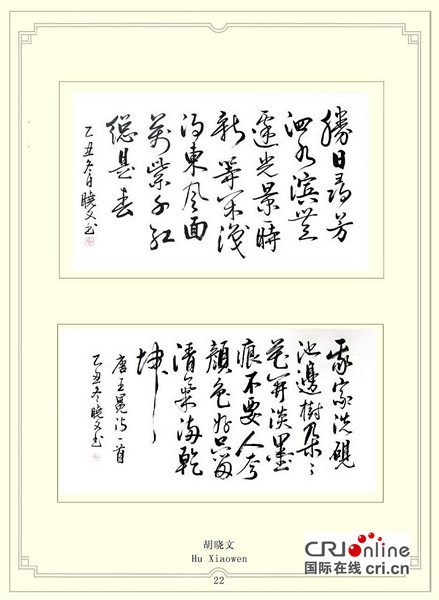 勝日尋芳
泗水濱無
邊光景一時
新等闲識
得東风面
萬紫千紅
總是春
乙丑冬日曉文书
我家洗硯
池邊樹朵〻
花開淡墨
痕不要人夸
顏色好只留
清氣滿乾
坤
唐王冕诗一首
乙丑冬曉文书
胡晓文
Hu Xiaowen
22
CRI online
国际在线 cri.cn